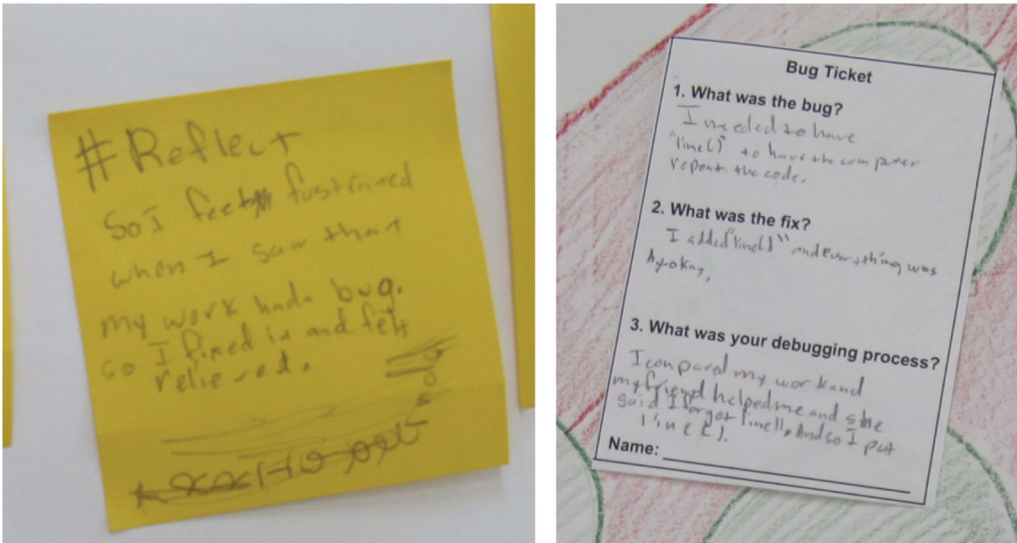 #Reflect
So I feel fustrated
when I saw that
my work had a bug.
so I fixed it and felt
relieved.
Bug Ticket
1. What was the bug?
I needed to have
"line()" to have the computer
repeat the code.
2. What was the fix?
I added "line()" and everything was
Ay-okay,
3. What was your debugging process?
I compared my work and
my friend helped me and she
said I forgot line(). And so I put
line().
Name: